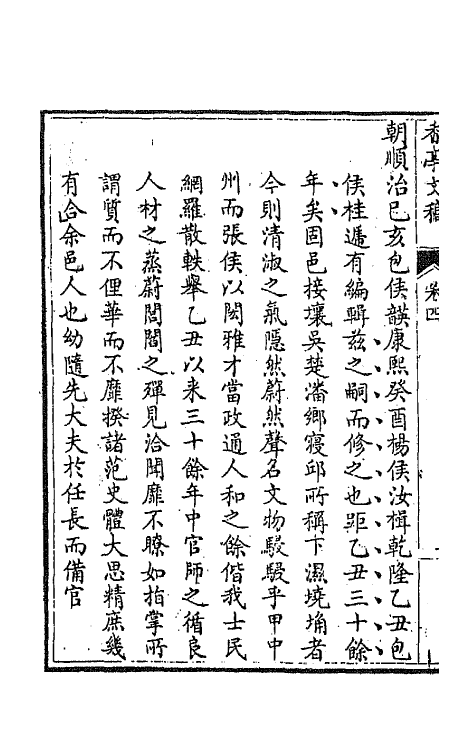 香亭文稿 卷四
朝順治己亥包侯韺康熙癸酉楊侯汝楫乾隆乙丑包
侯桂遞有編輯茲之嗣而修之也距乙丑三十餘
年矣固邑接壤吳楚潘鄉寢邱所稱下濕境埆者
今則清淑之氣隱然蔚然聲名文物駸駸乎甲中
州而張侯以閎雅才當政通人和之餘偕我士民
網羅散軼舉乙丑以来三十餘年中官師之循良
人材之蒸蔚閭閻之殫見洽聞靡不瞭如指掌所
謂質而不俚華而不靡揆諸范史體大思精庶幾
有合余邑人也幼隨先大夫於任長而備官